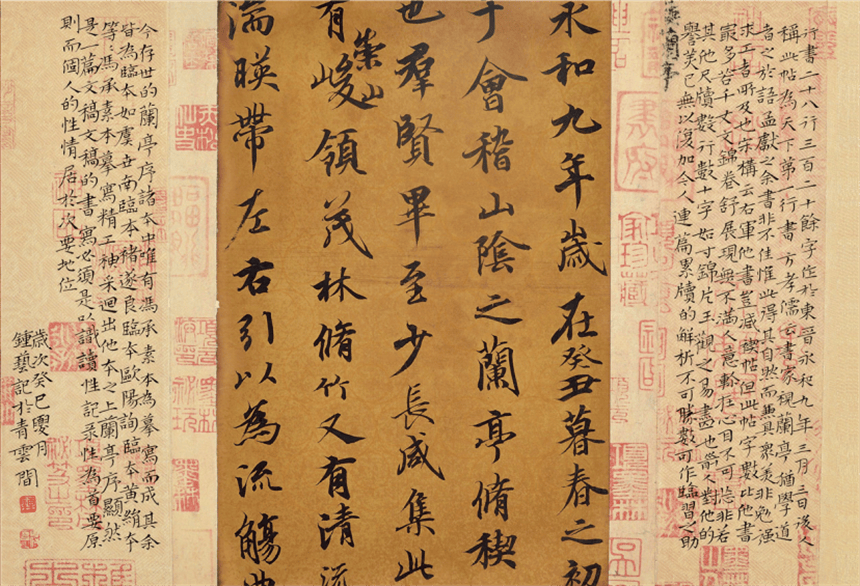 行書二十八行三百二十餘字作於東晉永和九年三月三日後人
稱此帖為天下第一行書方孝孺云書家視蘭亭猶學道
者之於語孟獻之余書非不佳惟此得其自然而無具眾美非勉強
求工者所及也宋構云右軍他書豈減禊帖但此帖字數比他書
最多若千丈文錦卷舒展現無不滿人意軫在心目不可忘非若
其他尺牘數行數十字如寸錦片玉觀之易盡也對他的
譽美已無以復加今人連篇累牘的解析不可勝數可作臨習之助
蘭亭序
永和九年歲在癸丑暮春之初
于會稽山陰之蘭亭脩稧
也羣賢畢至少長咸集此
有崇山峻領茂林脩竹又有清流
湍暎帶左右引以為流觴曲
今存世的蘭亭序諸本中唯有馮承素本為摹寫而成其余
皆為臨本如虞世南臨本褚遂良臨本歐陽詢臨本黃絹本
等馮承素本摹寫精工神采迴出他本之上蘭亭序顯然
是一篇文稿文稿的書寫必須是以識讀性記录性為首要原
則而個人的性情居於次要地位
歲次癸巳月
鍾藝記於青雲間